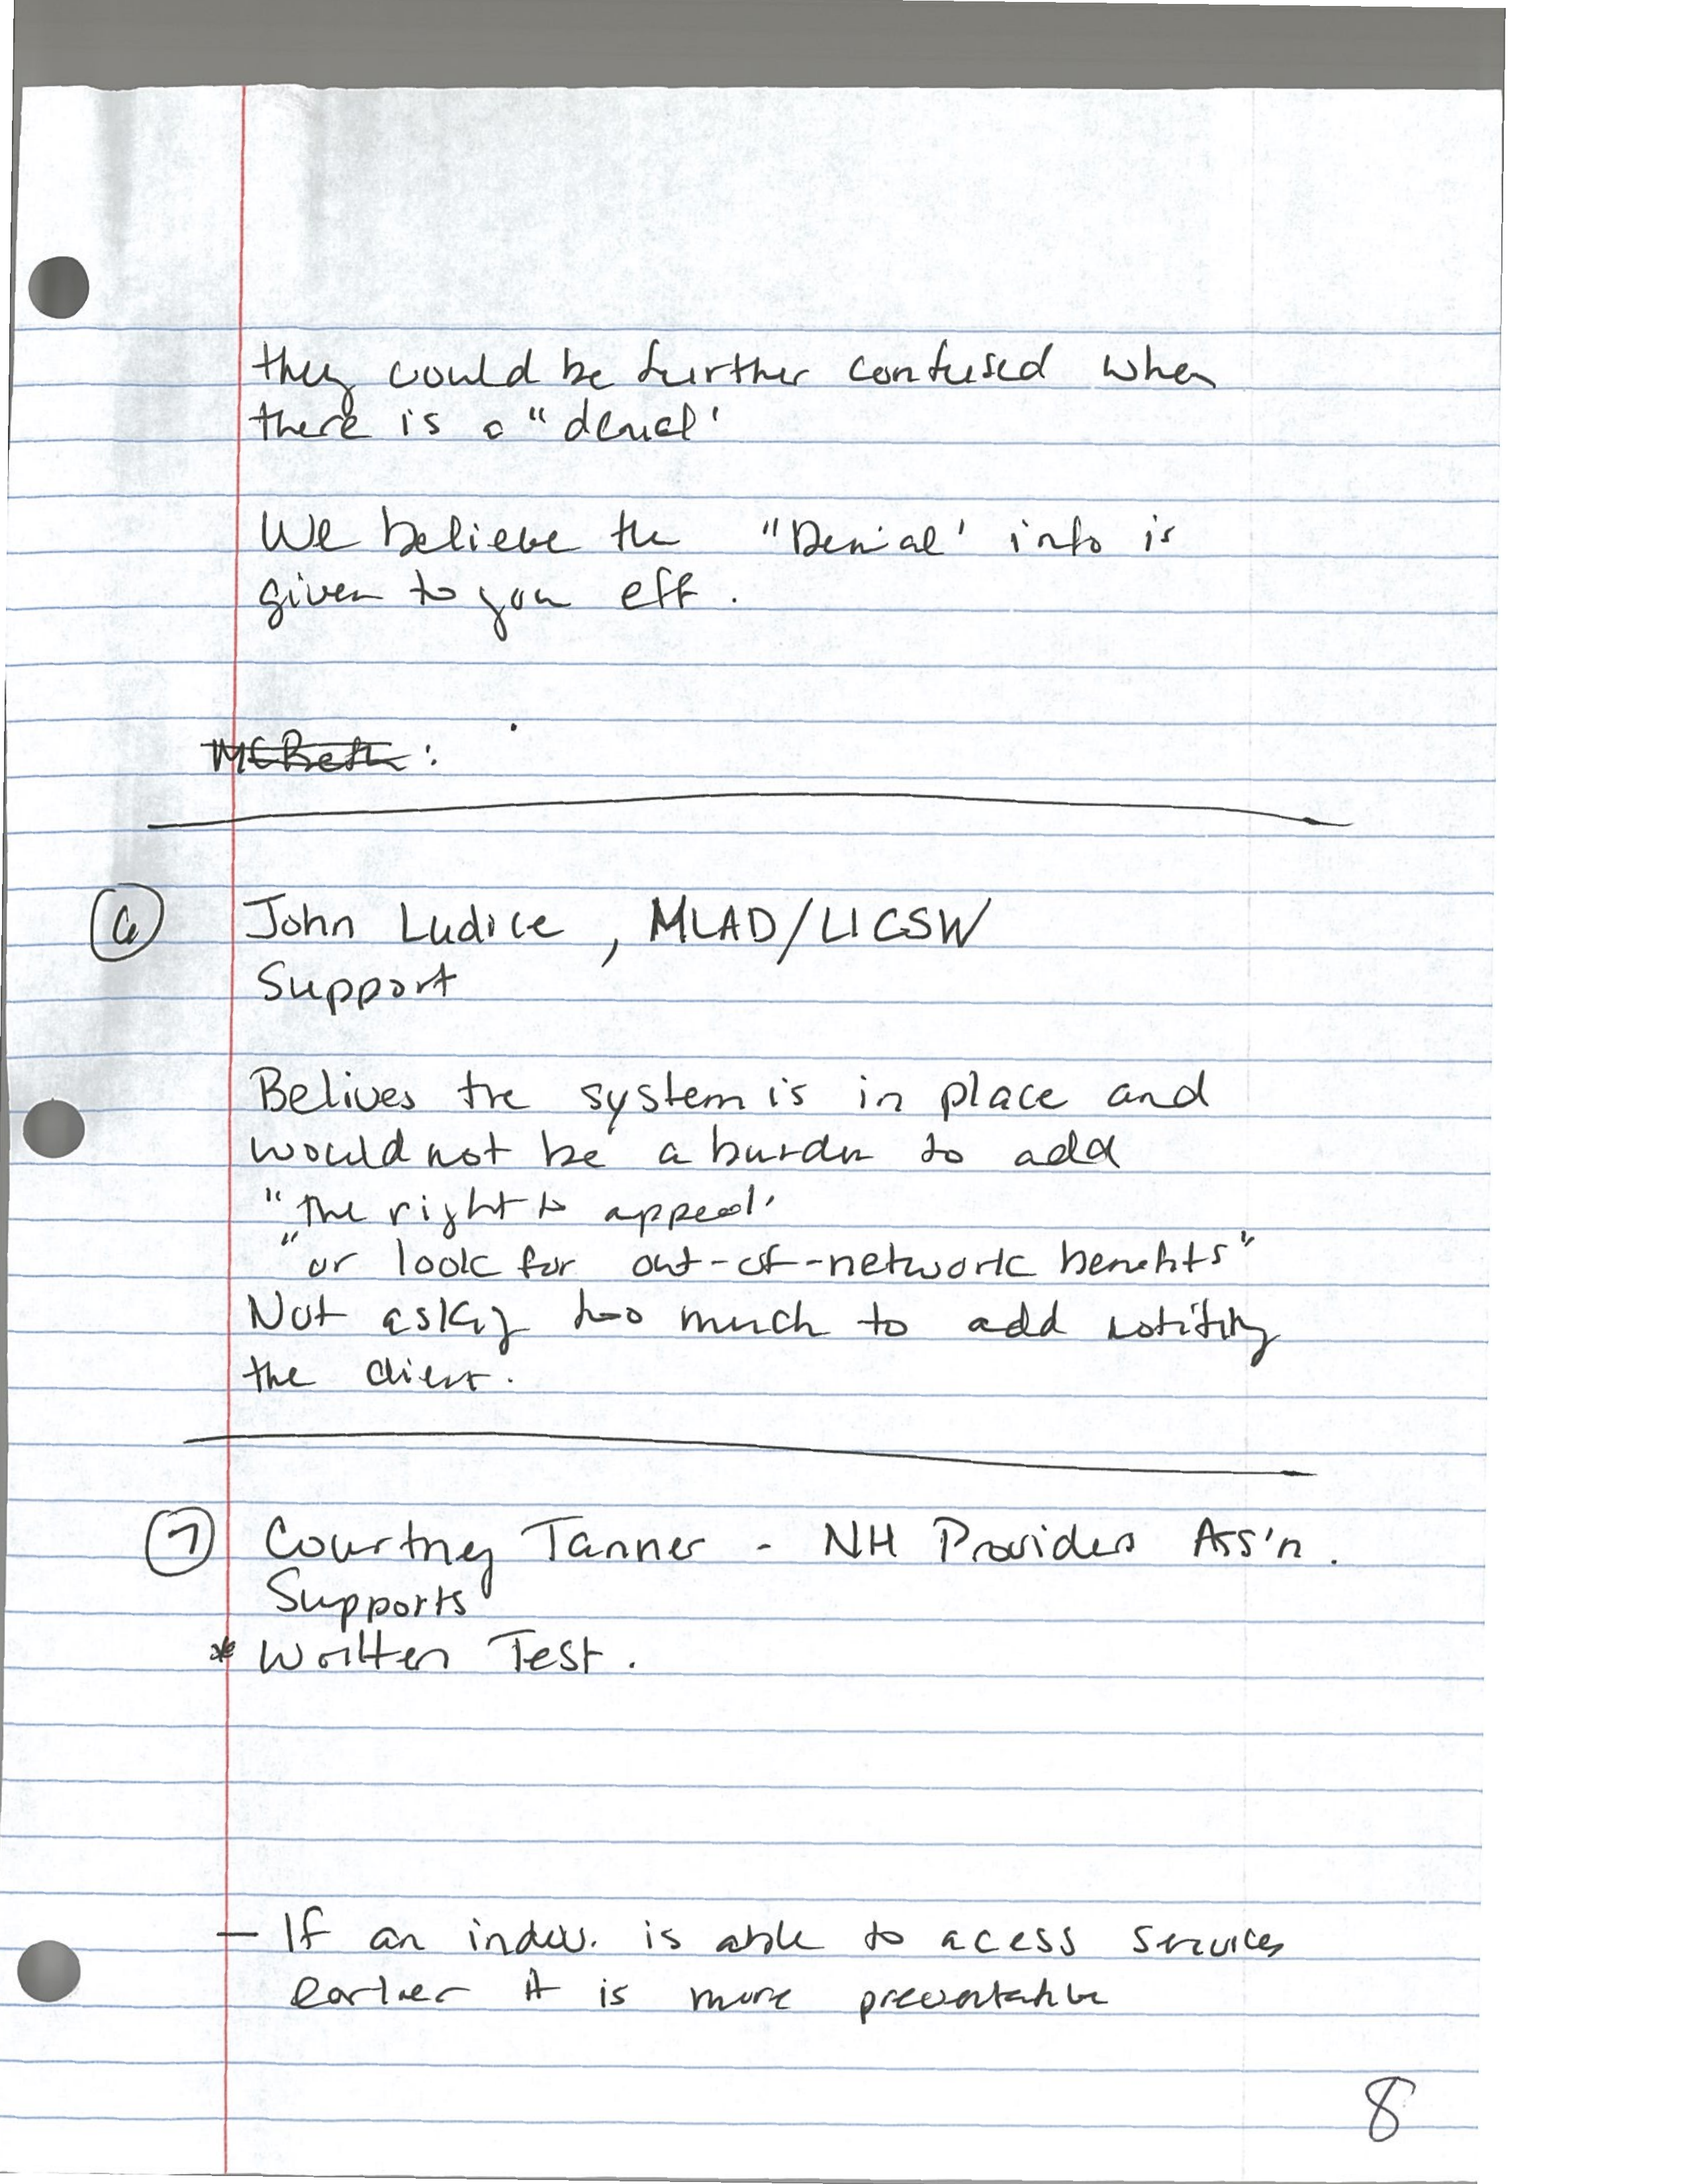 they could be further confused when
there is a "denial'
We believe the "Denial' info is
given to you eff.
McBeth:
6 John Ludice, MLAD/LICSW
Support
Belives the system is in place and
would not be a burdn to add
"the right to appeal'
"or look for out-of-network benefits"
Not asking too much to add notifing
the client.
7 Courtney Tanner - NH Providers Ass'n.
Supports
* Written Test.
— If an indiv. is able to acess services
earlier it is more preventable
8